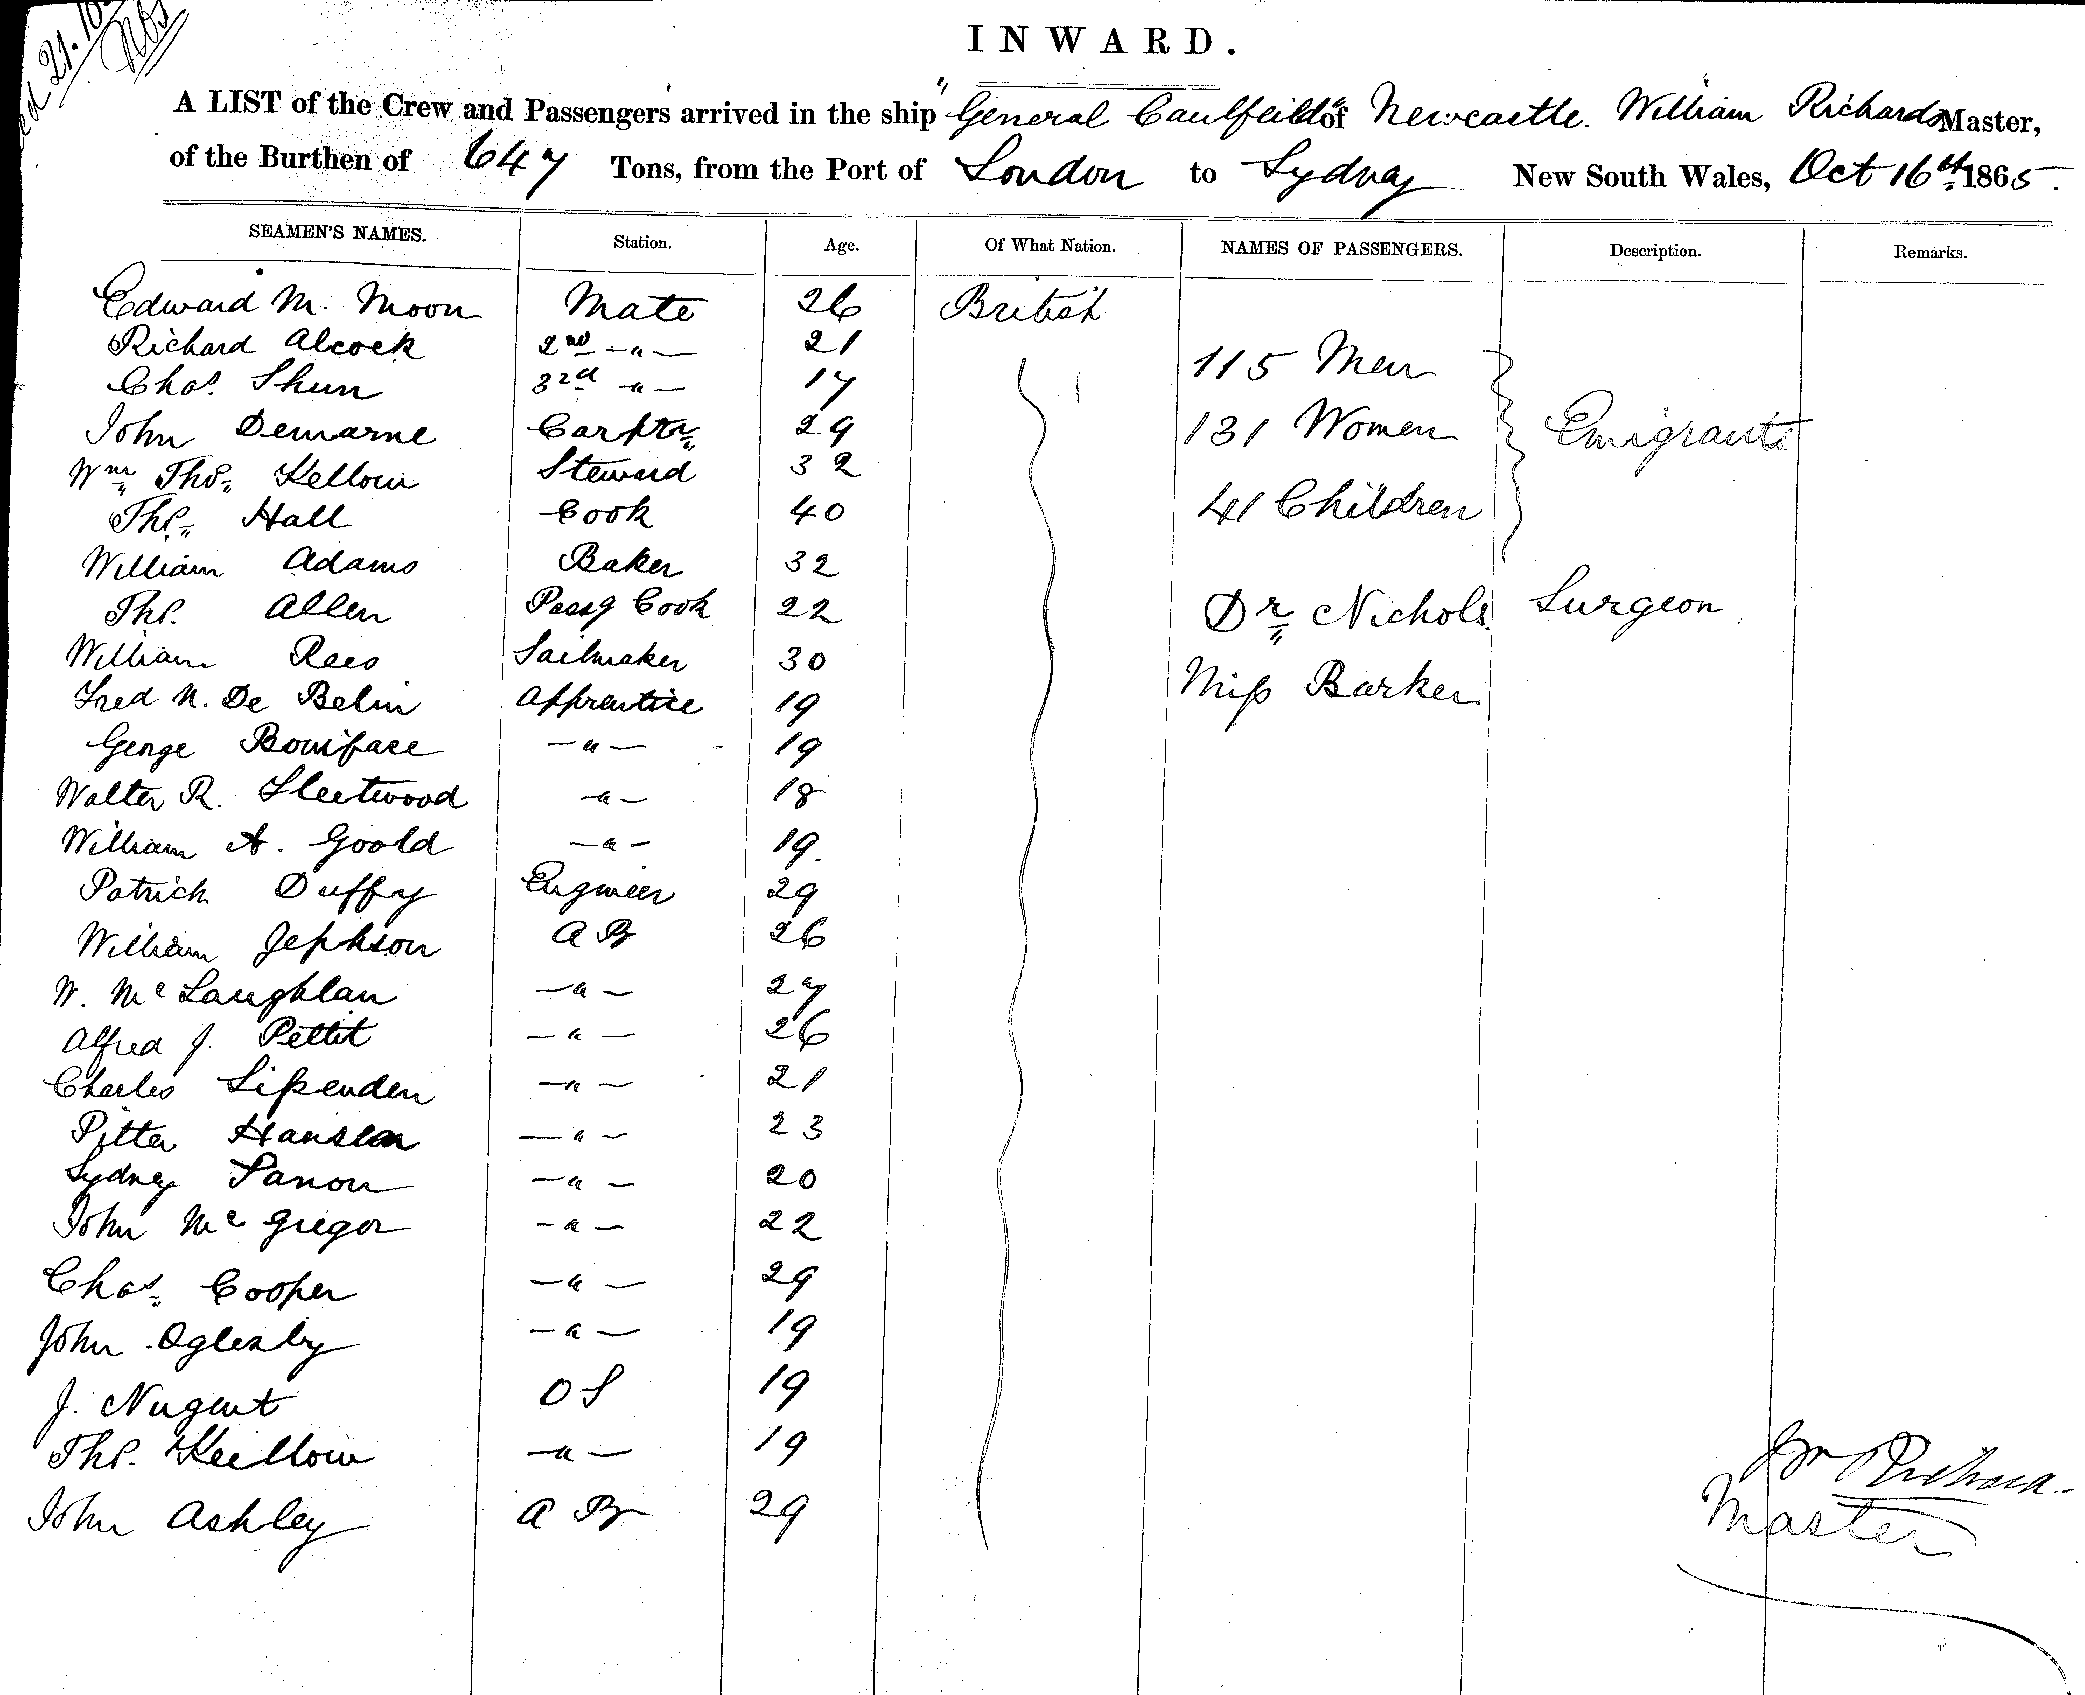 21.10
INWARD.
A LIST of the Crew and Passengers arrived in the ship "General Caulfeild" of Newcastle. William Richards Master,
of the Burthen of 647 Tons, from the Port of London to Sydney New South Wales, Oct 16th 1865.
SEAMEN'S NAMES. Station. Age. Of What Nation. NAMES OF PASSENGERS. Description. Remarks.
Edward M. Moon Mate 26 British
Richard Alcock 2nd —"— 21
115 Men
Chas. Shun 3rd —"— 17
John Demarne Carptr 29 131 Women Emigrants
Wm Thos Kellow Steward 32
Thos Hall Cook 40 41 Children
William Adams Baker 32
Thos. Allen Passg Cook 22 Dr Nichols Surgeon
William Rees Sailmaker 30
Miss Barker
Fred N. De Belin Apprentice 19
George Boniface —"— 19
Walter R. Fleetwood —"— 18
William A. Goold —"— 19.
Patrick Duffy Engineer 29
William Jephson A B 26
W. Mc Laughlan —"— 27
Alfred J. Pettit —"— 26
Charles Sissenden —"— 21
Pitter Hansen —"— 23
Sydney —"— 20
John Mc Gregor —"— 22
Chas. Cooper —"— 29
John Oglesby —"— 19
J. Nugent O S 19
Thos. Keillow —"— 19
Wm Richards
John Ashley A B 29
Master